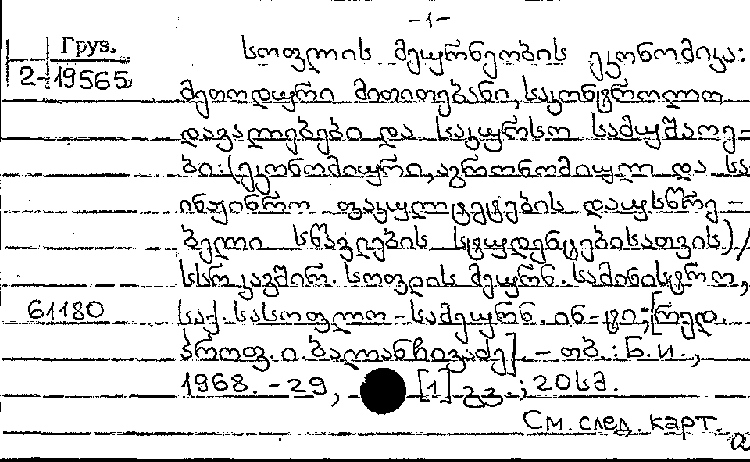 -1-
Груз.
2-19565
სოფლის მეურნეობის ეკონომიკა:
მეთოდური მითითებანი, საკონტროლო
დავალებები და საკურსო სამუშაოე-
ბი: (ეკონომიური, აგრონომიულ და სა
ინჟინრო ფაკულტეტების დაუსწრე-
ბელი სწავლების სტუდენტებისათვის)/
სსრ კავშირ. სოფლის მეურნ. სამინისტრო,
61180
საქ. სასოფლო-სამეურნ. ინ-ტი; [რედ.
პროფ. ი. ბალანჩივაძე]. - თბ.: Б.И.,
1968. - 29, [1] გვ.; 20 სმ.
См. след. карт.